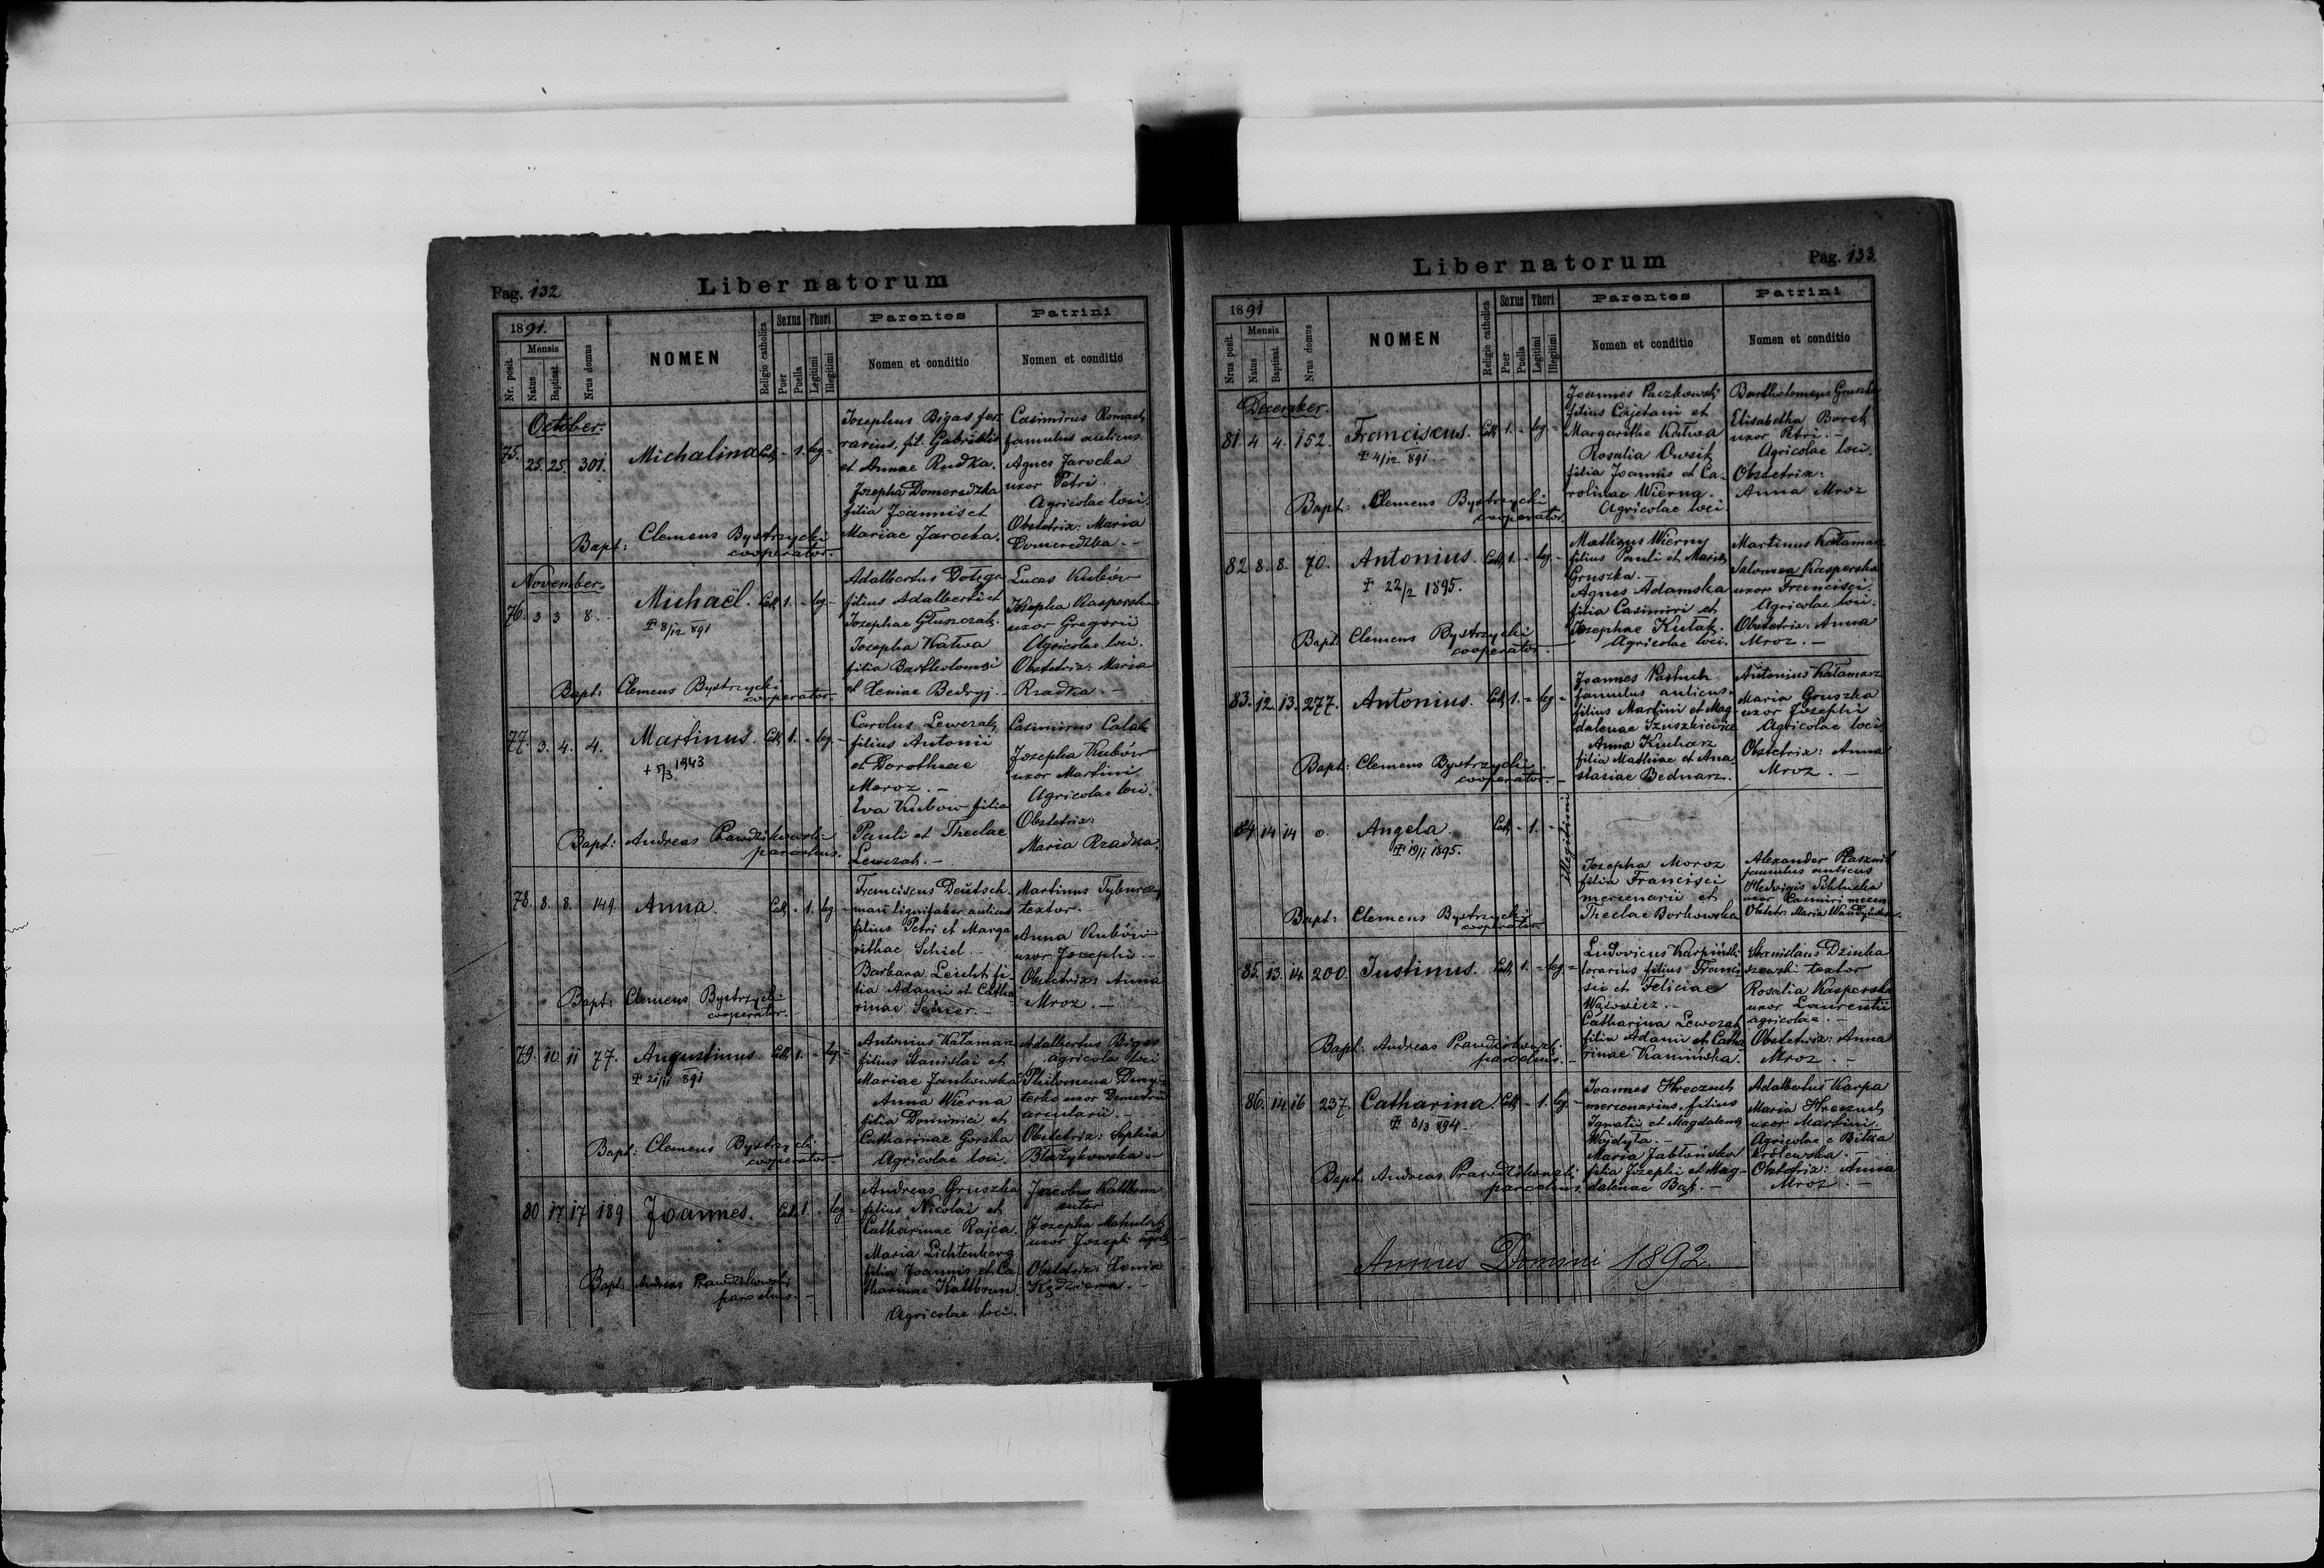 Pag. 132
Liber natorum
1891.
Nr. posit.
Mensis
Natus
Baptisat.
Nrus domus
NOMEN
Religio catholica
Sexus
Puer
Puella
Thori
Legitimi
Illegitimi
Parentes
Nomen et conditio
Patrini
Nomen et conditio
October.
75. 25. 25. 301. Michalina Cath - 1. leg -
Josephus Bigas fer-
rarius, fil. Gabrielis
et Annae Rudka.
Josepha Domeredzka
filia Joannis et
Mariae Jarocka.
Casimirus Romach
famulus aulicus
Agnes Jarocka
uxor Petri
Agricolae loci.
Obstetrix: Maria
Domeredzka. -
Bapt: Clemens Bystrzycki
cooperator. -
November.
76. 3 3 8. Michaël. Cath 1. - leg -
✝ 8/12 891
Adalbertus Dołęga
filius Adalberti et
Josephae Głuszczak.
Josepha Kałwa
filia Bartholomei
et Xeniae Bedryj. -
Lucas Kubów
Josepha Kasperska
uxor Gregorii
Agricolae loci.
Obstetrix: Maria
Rzadka. -
Bapt: Clemens Bystrzycki
cooperator. -
77. 3. 4. 4. Martinus. Cath 1. - leg. -
+ 5/3 1943
Carolus Lewczak
filius Antonii
et Dorotheae
Moroz. -
Eva Kubow filia
Pauli et Theclae
Lewczak. -
Casimirus Całak
Josepha Kubów
uxor Martini
Agricolae loci.
Obstetrix:
Maria Rzadka.
Bapt: Andreas Prawdzikowski
parochus.
78. 8. 8. 149 Anna. Cath - 1. leg. -
Franciscus Deütsch-
man lignifaber aulicus
filius Petri et Marga
rithae Schiel -
Barbara Leicht fi-
lia Adami et Catha
rinae Scherer. -
Martinus Tyburczy
textor. -
Anna Kubów
uxor Josephi -
Obstetrix: Anna
Mroz. -
Bapt: Clemens Bystrzycki
cooperator.
79. 10. 11 77. Augustinus. Cath 1. - leg -
✝ 21/11 891
Antonius Kałamarz
filius Stanislai et
Mariae Jankowska
Anna Wierna
filia Dominici et
Catharinae Gorska
Agricolae loci.
Adalbertus Bigas
agricola loci
Philomena Dmy-
terko uxor Demetrii
arcularii. -
Obstetrix: Sophia
Błażykowska -
Bapt: Clemens Bystrzycki
cooperator. -
80 17 17 189 Joannes. Cath 1. - leg -
Andreas Gruszka
filius Nicolai et
Catharinae Rajca.
Maria Lichtenberg
filia Joannis et Ca
tharinae Kaltbrun
Agricolae loci.
Jacobus Kaltbrun
sutor
Josepha
uxor Josephi agrlae -
Obstetrix: Xenia
Kędziera. -
Bapt: Andreas Prawdzikowski
parochus. -
Liber natorum
Pag. 133
1891
Nrus posit.
Mensis
Natus
Baptisat.
Nrus domus
NOMEN
Religio catholica
Sexus
Puer
Puella
Thori
Legitimi
Illegitimi
Parentes
Nomen et conditio
Patrini
Nomen et conditio
December.
81. 4 4. 152. Franciscus. Cath 1. - leg -
✝ 4/12 891. -
Joannes Paczkowski
filius Cajetani et
Margarithe Kałwa
Rosalia Owsik
filia Joannis et Ca-
rolinae Wierna.
Agricolae loci.
Bartholomeus Gruszka
Elisabetha Borek
uxor Petri. -
Agricolae loci.
Obstetrix:
Anna Mroz
Bapt: Clemens Bystrzycki
cooperator.
82. 8. 8. 70. Antonius. Cath 1. - leg. -
✝ 22/2 1895.
Matheus Wierny
filius Pauli et Mariae
Gruszka. -
Agnes Adamska
filia Casimiri et
Josephae Kutak.
Agricolae loci.
Martinus Kałamarz
Salomea Kasperska
uxor Francisci.
Agricolae loci.
Obstetrix: Anna
Mroz. -
Bapt: Clemens Bystrzycki
cooperator. -
83. 12. 13. 277. Antonius. Cath 1. - leg -
Joannes Pastuch
famulus aulicus
filius Martini et Mag-
dalenae Szuszkiewicz
Anna Kucharz
filia Mathiae et Ana
stasiae Bednarz.
Antonius Kałamarz
Maria Gruszka
uxor Josephi
Agricolae loci.
Obstetrix: Anna
Mroz. -
Bapt: Clemens Bystrzycki
cooperator. -
84. 14 14 0. Angela. Cath - 1. - Illegitimi
✝ 19/1 1895.
Josepha Moroz
filia Francisci
mercenarii et
Theclae Borkowska
Alexander
famulus aulicus
Hedwigis
uxor Casimiri mercen
Obstetr: Maria
Bapt: Clemens Bystrzycki
cooperator. -
85. 13. 14. 200. Justinus. Cath 1. - leg. -
Ludovicus Karpiński
lorarius filius Franci
sci et Feliciae
Wąsowicz. -
Catharina Lewczak
filia Adami et Catha
rinae Kamińska.
Stanislaus Dziuba
szewski textor
Rosalia Kasperska
uxor Laurentii
agricolae. -
Obstetrix: Anna
Mroz. -
Bapt: Andreas Prawdzikowski
parochus. -
86. 14 16 237. Catharina. Cath - 1. leg. -
✝ 8/3 894 -
Joannes Hreczuch
mercenarius, filius
Ignatii et Magdalenae
Wojdyła. -
Maria Jabłońska
filia Josephi et Mag-
dalenae Bąk. -
Adalbertus Karpa
Maria Hreczuch
uxor Martini.
Agricolae e Biłka
królewska. -
Obstetrix: Anna
Mroz. -
Bapt: Andreas Prawdzikowski
parochus.
Annus Domini 1892.